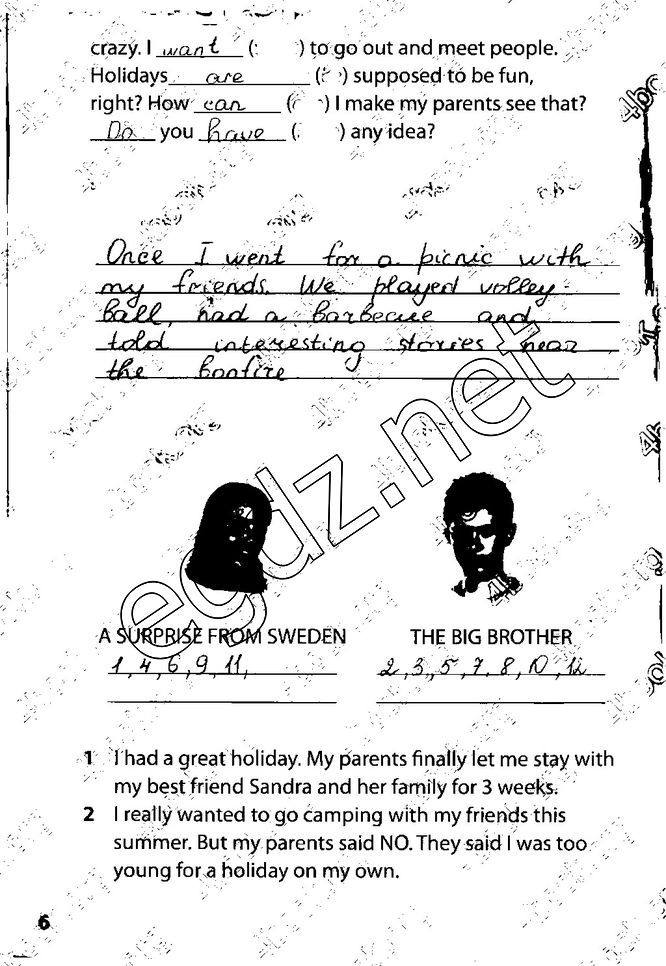 crazy. I want ( ) to go out and meet people.
Holidays are ( ) supposed to be fun,
right? How can ( ) I make my parents see that?
Do you have ( ) any idea?
Once I went for a picnic with
my friends. We played volley-
ball, had a barbecue and
told interesting stories near
the bonfire
egdz.net
A SURPRISE FROM SWEDEN
1, 4, 6, 9, 11,
THE BIG BROTHER
2, 3, 5, 7, 8, 10, 12
1 I had a great holiday. My parents finally let me stay with
my best friend Sandra and her family for 3 weeks.
2 I really wanted to go camping with my friends this
summer. But my parents said NO. They said I was too
young for a holiday on my own.
6